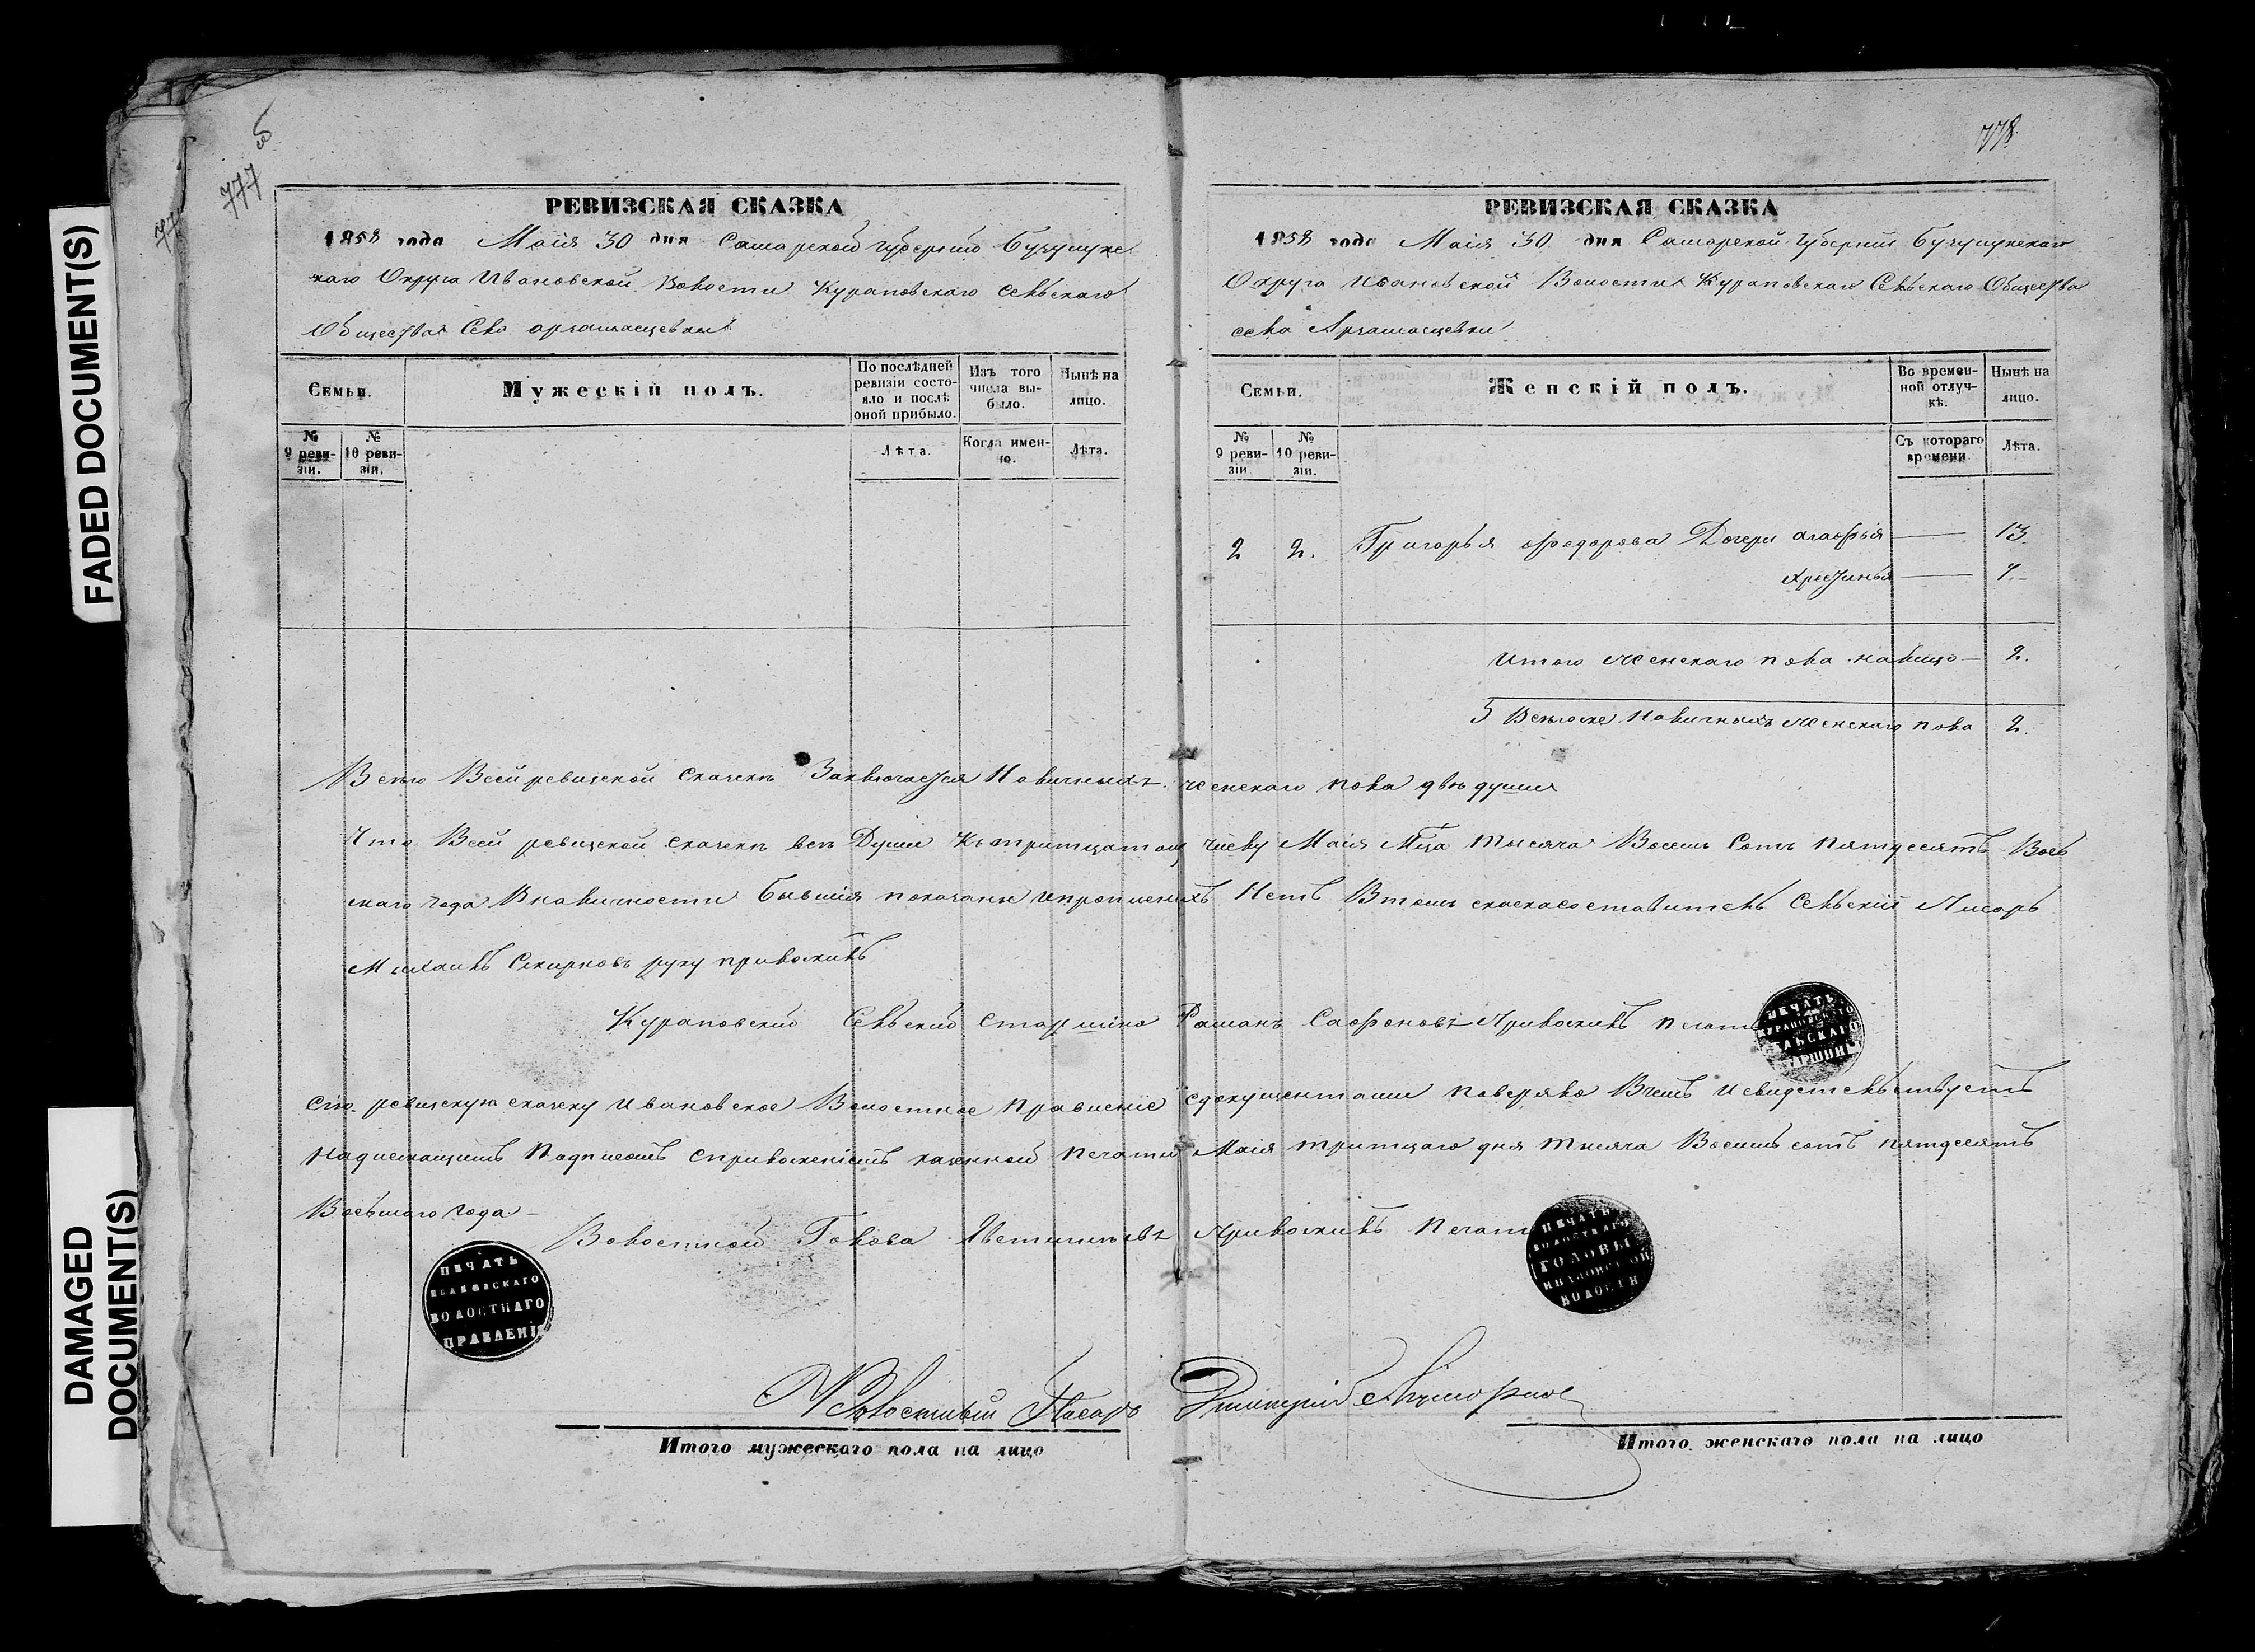 FADED DOCUMENT(S)
DAMAGED DOCUMENT(S)
777
778.
РЕВИЗСКАЯ СКАЗКА
1858 года Маія 30 дня Самарской губерніи Бузулукс
каго Округа Ивановской Волости Кураповскаго Сельскаго
Общества Села арзамасцевки
Семьи.
Мужескій полъ.
По послѣдней ревизіи состояло и послѣ оной прибыло.
Изъ того числа выбыло.
Нынѣ на лицо.
№ 9 ревизіи.
№ 10 ревизіи.
Лѣта.
Когда именно.
Лѣта.
РЕВИЗСКАЯ СКАЗКА
1858 года Маія 30 дня Самарской Губерніи Бузулукскаго
Округа Ивановской Волости Кураповскаго Сельскаго Общества
села Арзамасцевки
Семьи.
Женскій полъ.
Во временной отлучкѣ.
Нынѣ на лицо.
№ 9 ревизіи
№ 10 ревизіи.
Съ котораго времени.
Лѣта.
2 2. Григорья Федорова Дочери агафія — 13.
Хрестинья —
Итого женскаго пола налицо — 2.
Всего же Наличныхъ женскаго пола 2.
Всего Всей ревизской сказкѣ Заключается Наличныхъ женскаго пола двѣ души
Что Всей ревизской сказкѣ всѣ Души къ тритцатому числу Маія Мца тысяча Восемь Сотъ пятдесятъ Вось
маго года Вналичности бывшія показаны ипрописныхъ Нетъ Втомъ сказкасоставитель Сельскій Писарь
Михаилъ Смирновъ руку приложилъ
Кураповский Сельский старшина Раманъ Сафоновъ Приложилъ печать
ПЕЧАТЬ КУРАПОВСКАГО СЕЛЬСКАГО СТАРШИНЫ
Сію ревизскую сказку Ивановское Волостное правленіе сдокументами поверяло Вчемъ исвидетельствуетъ
надлежащимъ Подписомъ сприложеніемъ казенной печати Маія тритцаго дня тысяча Восемь сотъ пятдесятъ
Восьмаго года
Волостной Голова приложилъ печать
ПЕЧАТЬ ВОЛОСТНАГО ГОЛОВЫ ИВАНОВСКОЙ ВОЛОСТИ
ПЕЧАТЬ ИВАНОВСКАГО ВОЛОСТНАГО ПРАВЛЕНІЯ
Волостный Писарь
Итого мужескаго пола на лицо
Итого женскаго пола на лицо